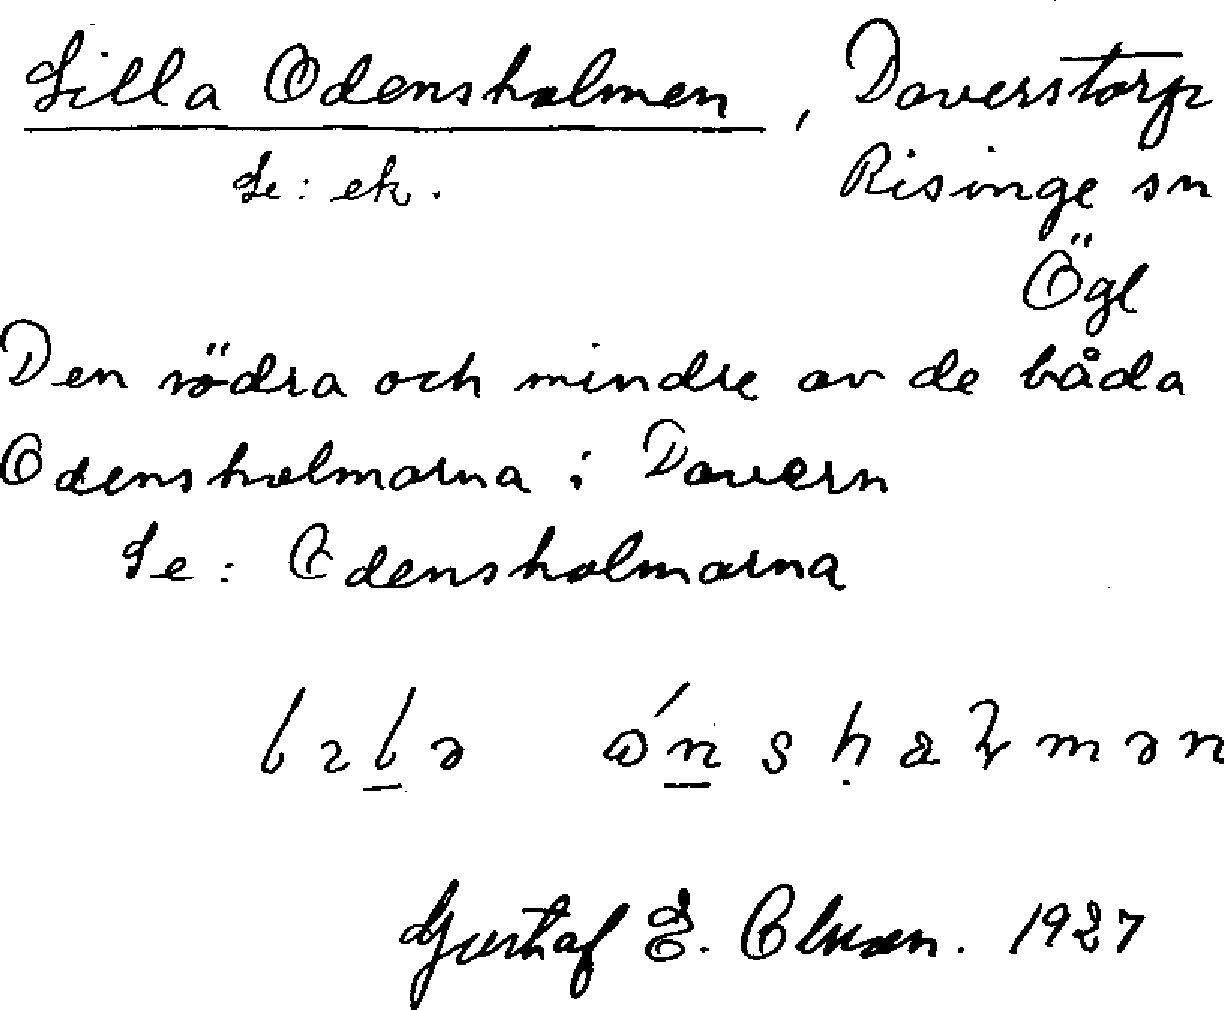 Lilla Odensholmen, Daverstorp
Se: ek. Risinge sn
Ögl
Den södra och mindre av de båda
Odensholmarna i Dovern
Se: Odensholmarna
Gustaf E. Olsson. 1927